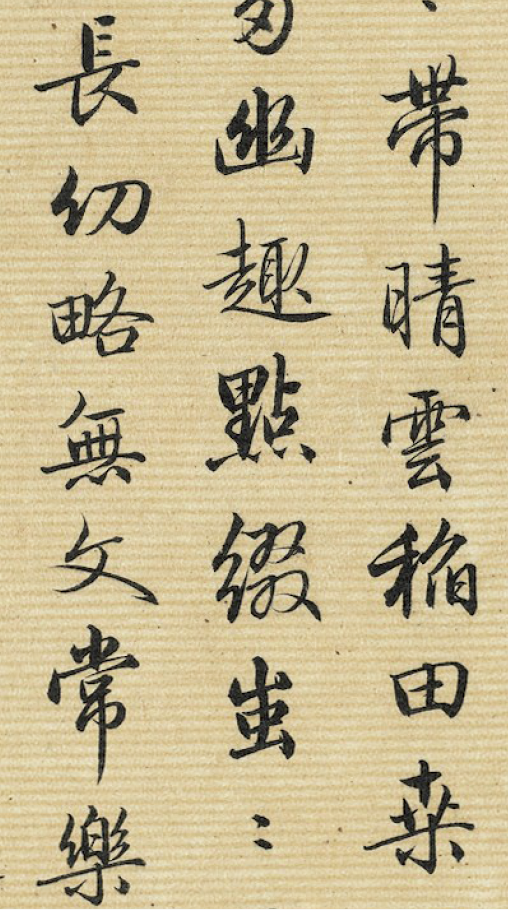 帶晴雲稻田桒
幽趣點綴蚩〻
長幼略無文常樂